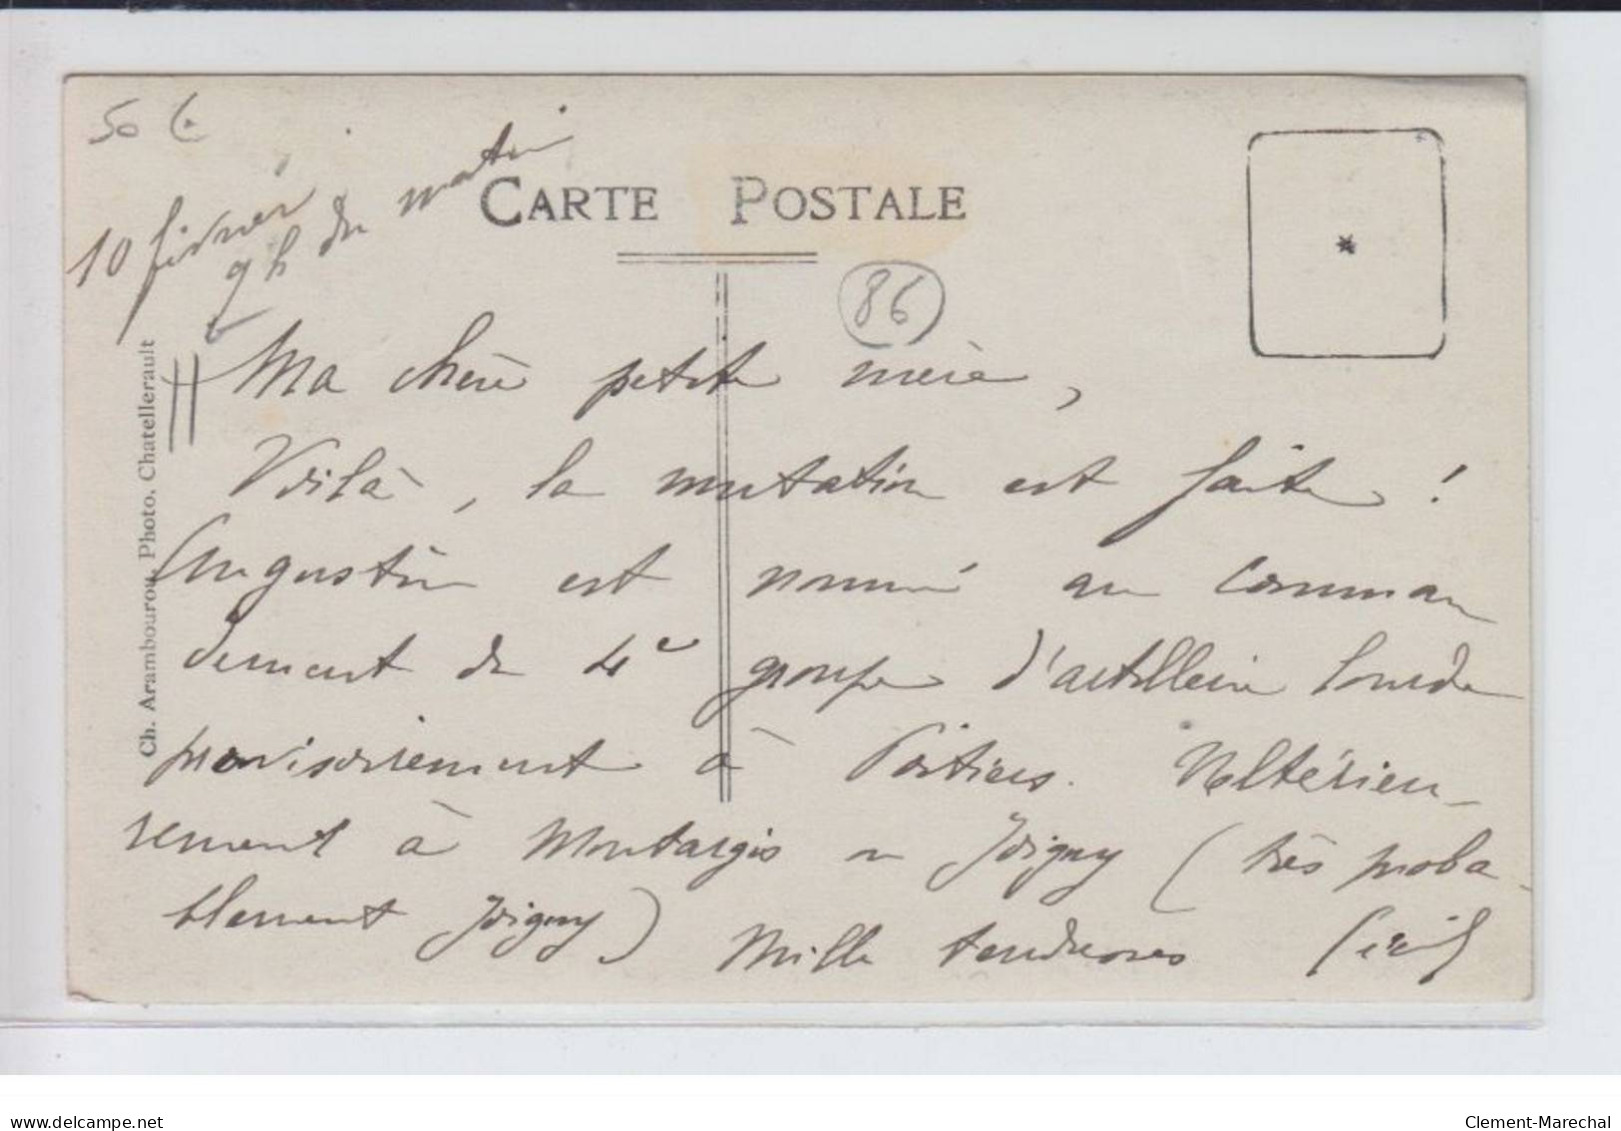 50 €
10 février
9h du matin
CARTE POSTALE
86
Ma chère petite mère,
Voilà, la mutation est faite !
Augustin est nommé au comman
dement du 4e groupe d'artillerie lourde
provisoirement à Poitiers. Ultérieu-
rement à Montargis ou Joigny (très proba-
blement Joigny)
Mille tendresses
Ch. Arambourou, Photo, Chatellerault
www.delcampe.net
Clement-Marechal